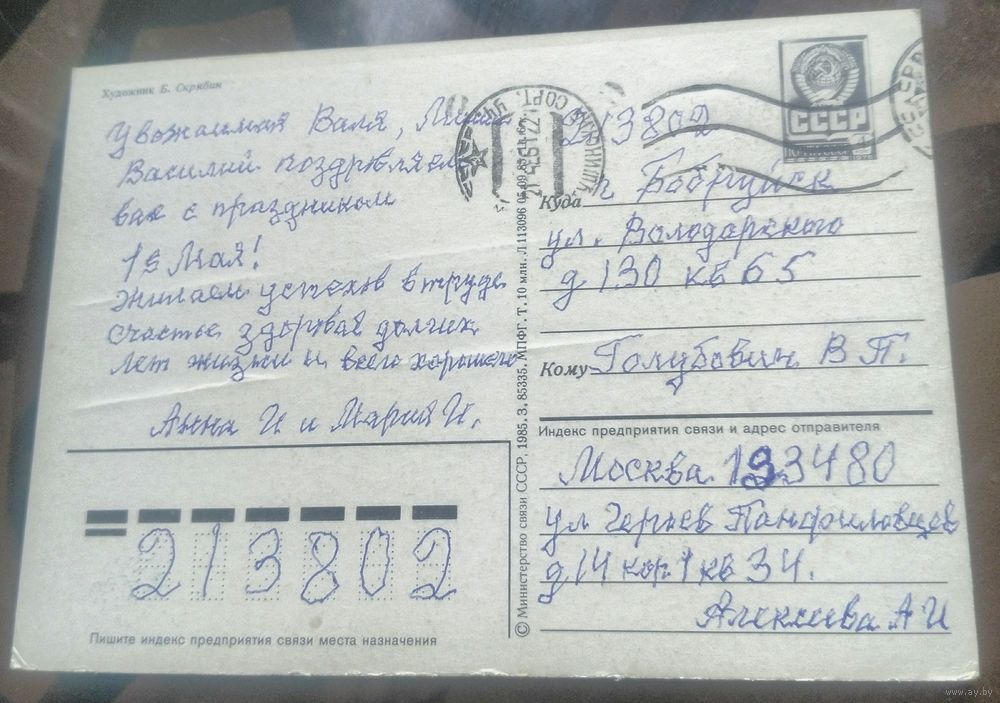 Художник Б. Скрябин
Уважаимая Валя,
Василий поздравляем
вас с праздником
1 Мая!
Жилаем успехов в труде
счастье здоровье долгих
лет жизни и всего хорошего
Анна И и Мария И.
213802
Куда г Бобруйск
ул. Володарского
д 130 кв 65
Кому Голубович В П.
Индекс предприятия связи и адрес отправителя
Москва
ул Героев Панфиловцев
д 14 кор 1 кв 34.
Алексеева А И
213802
Пишите индекс предприятия связи места назначения
© Министерство связи СССР, 1985. З. 85335. МПФГ. Т. 10 млн. Л 113096 05.09.85
СССР
www.ay.by